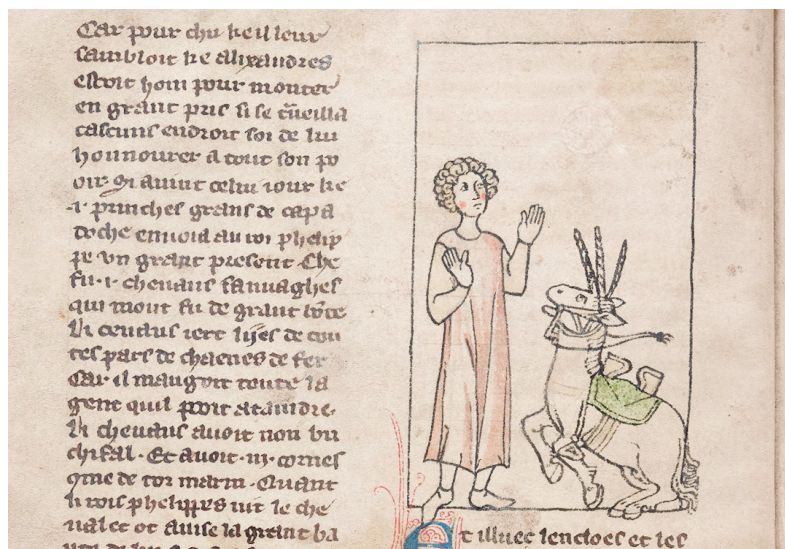 Car pour chu ke il leur
sambloit ke alixandres
estoit hom pour monter
en grant pris si se cueilla
cascuns endroit soi de lui
honnourer a tout son po
oir. Si avint celui iour ke
.i. princhel grans de capa
doche envoia au roi phelip
pe un grant present. Che
fu .i. chevaus sauvaghes
qui mout fu de grant
li cevaus iert liiés de tou
tes pars de chaenes de fer
Car il mangoit toute la
gent quil pooit ataindre.
li chevaus avoit non bu
chifal. Et avoit .iii. cornes
de tor marin. Quant
li rois phelippes vit le che
val et ot avise la grant ba
Et illuec lencloes et les